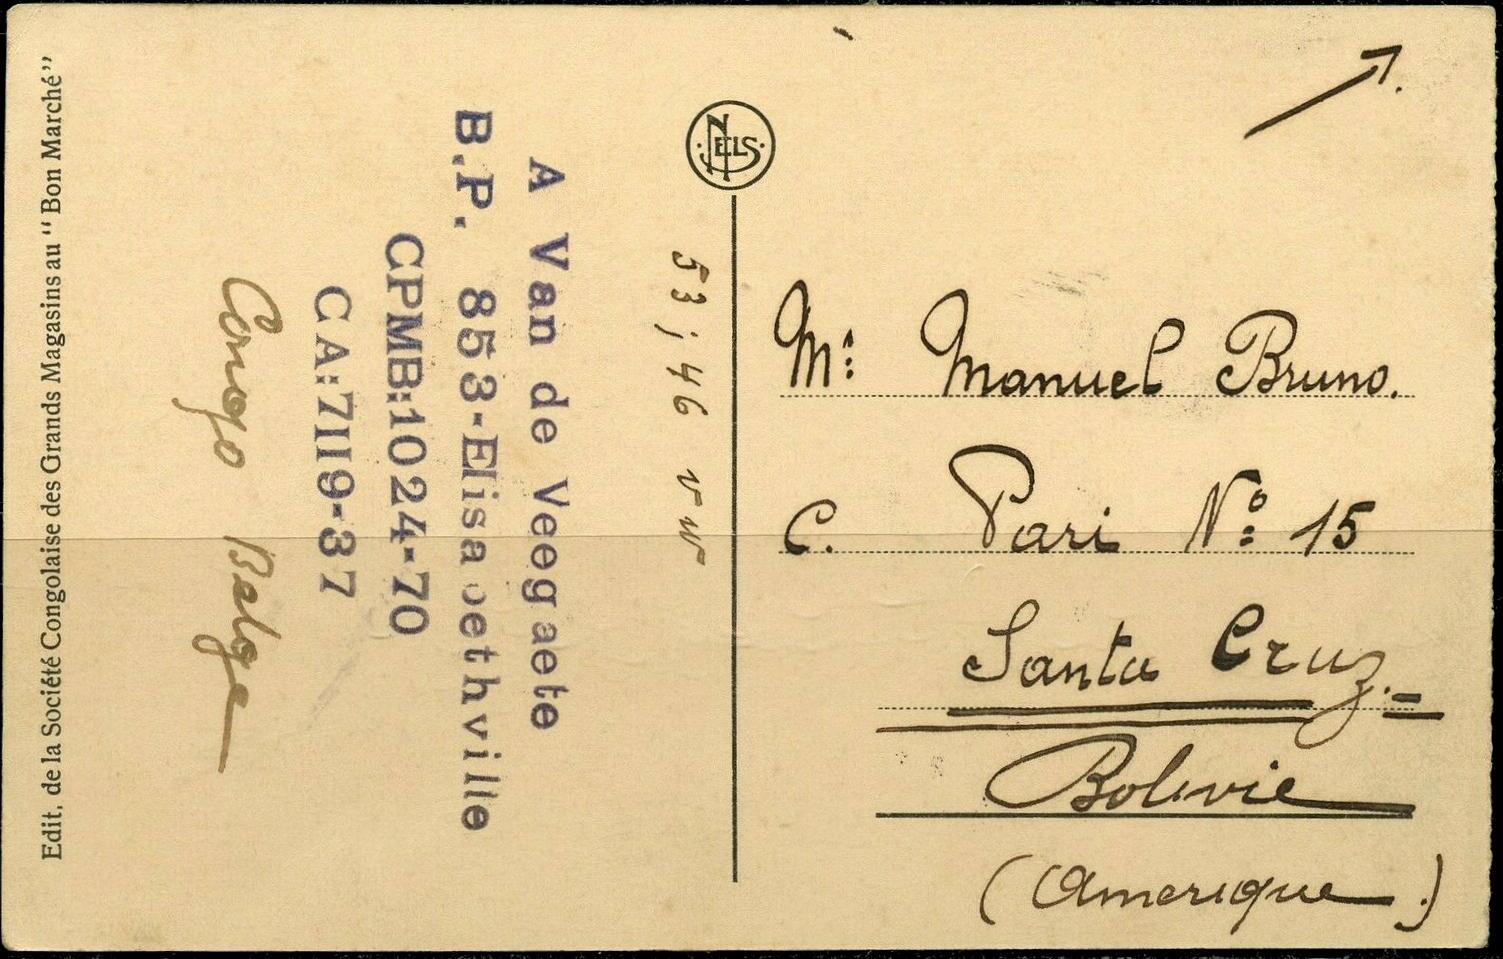 Edit. de la Société Congolaise des Grands Magasins au "Bon Marché"
A Van de Veegaete
B.P. 853-Elisa ethville
CPMB:1024-70
CA:7119-37
Congo Belge
NELS
53; 46 v w
Mr: Manuel Bruno.
C. Pari No: 15
Santa Cruz.-
Bolivie
(Amerique.)